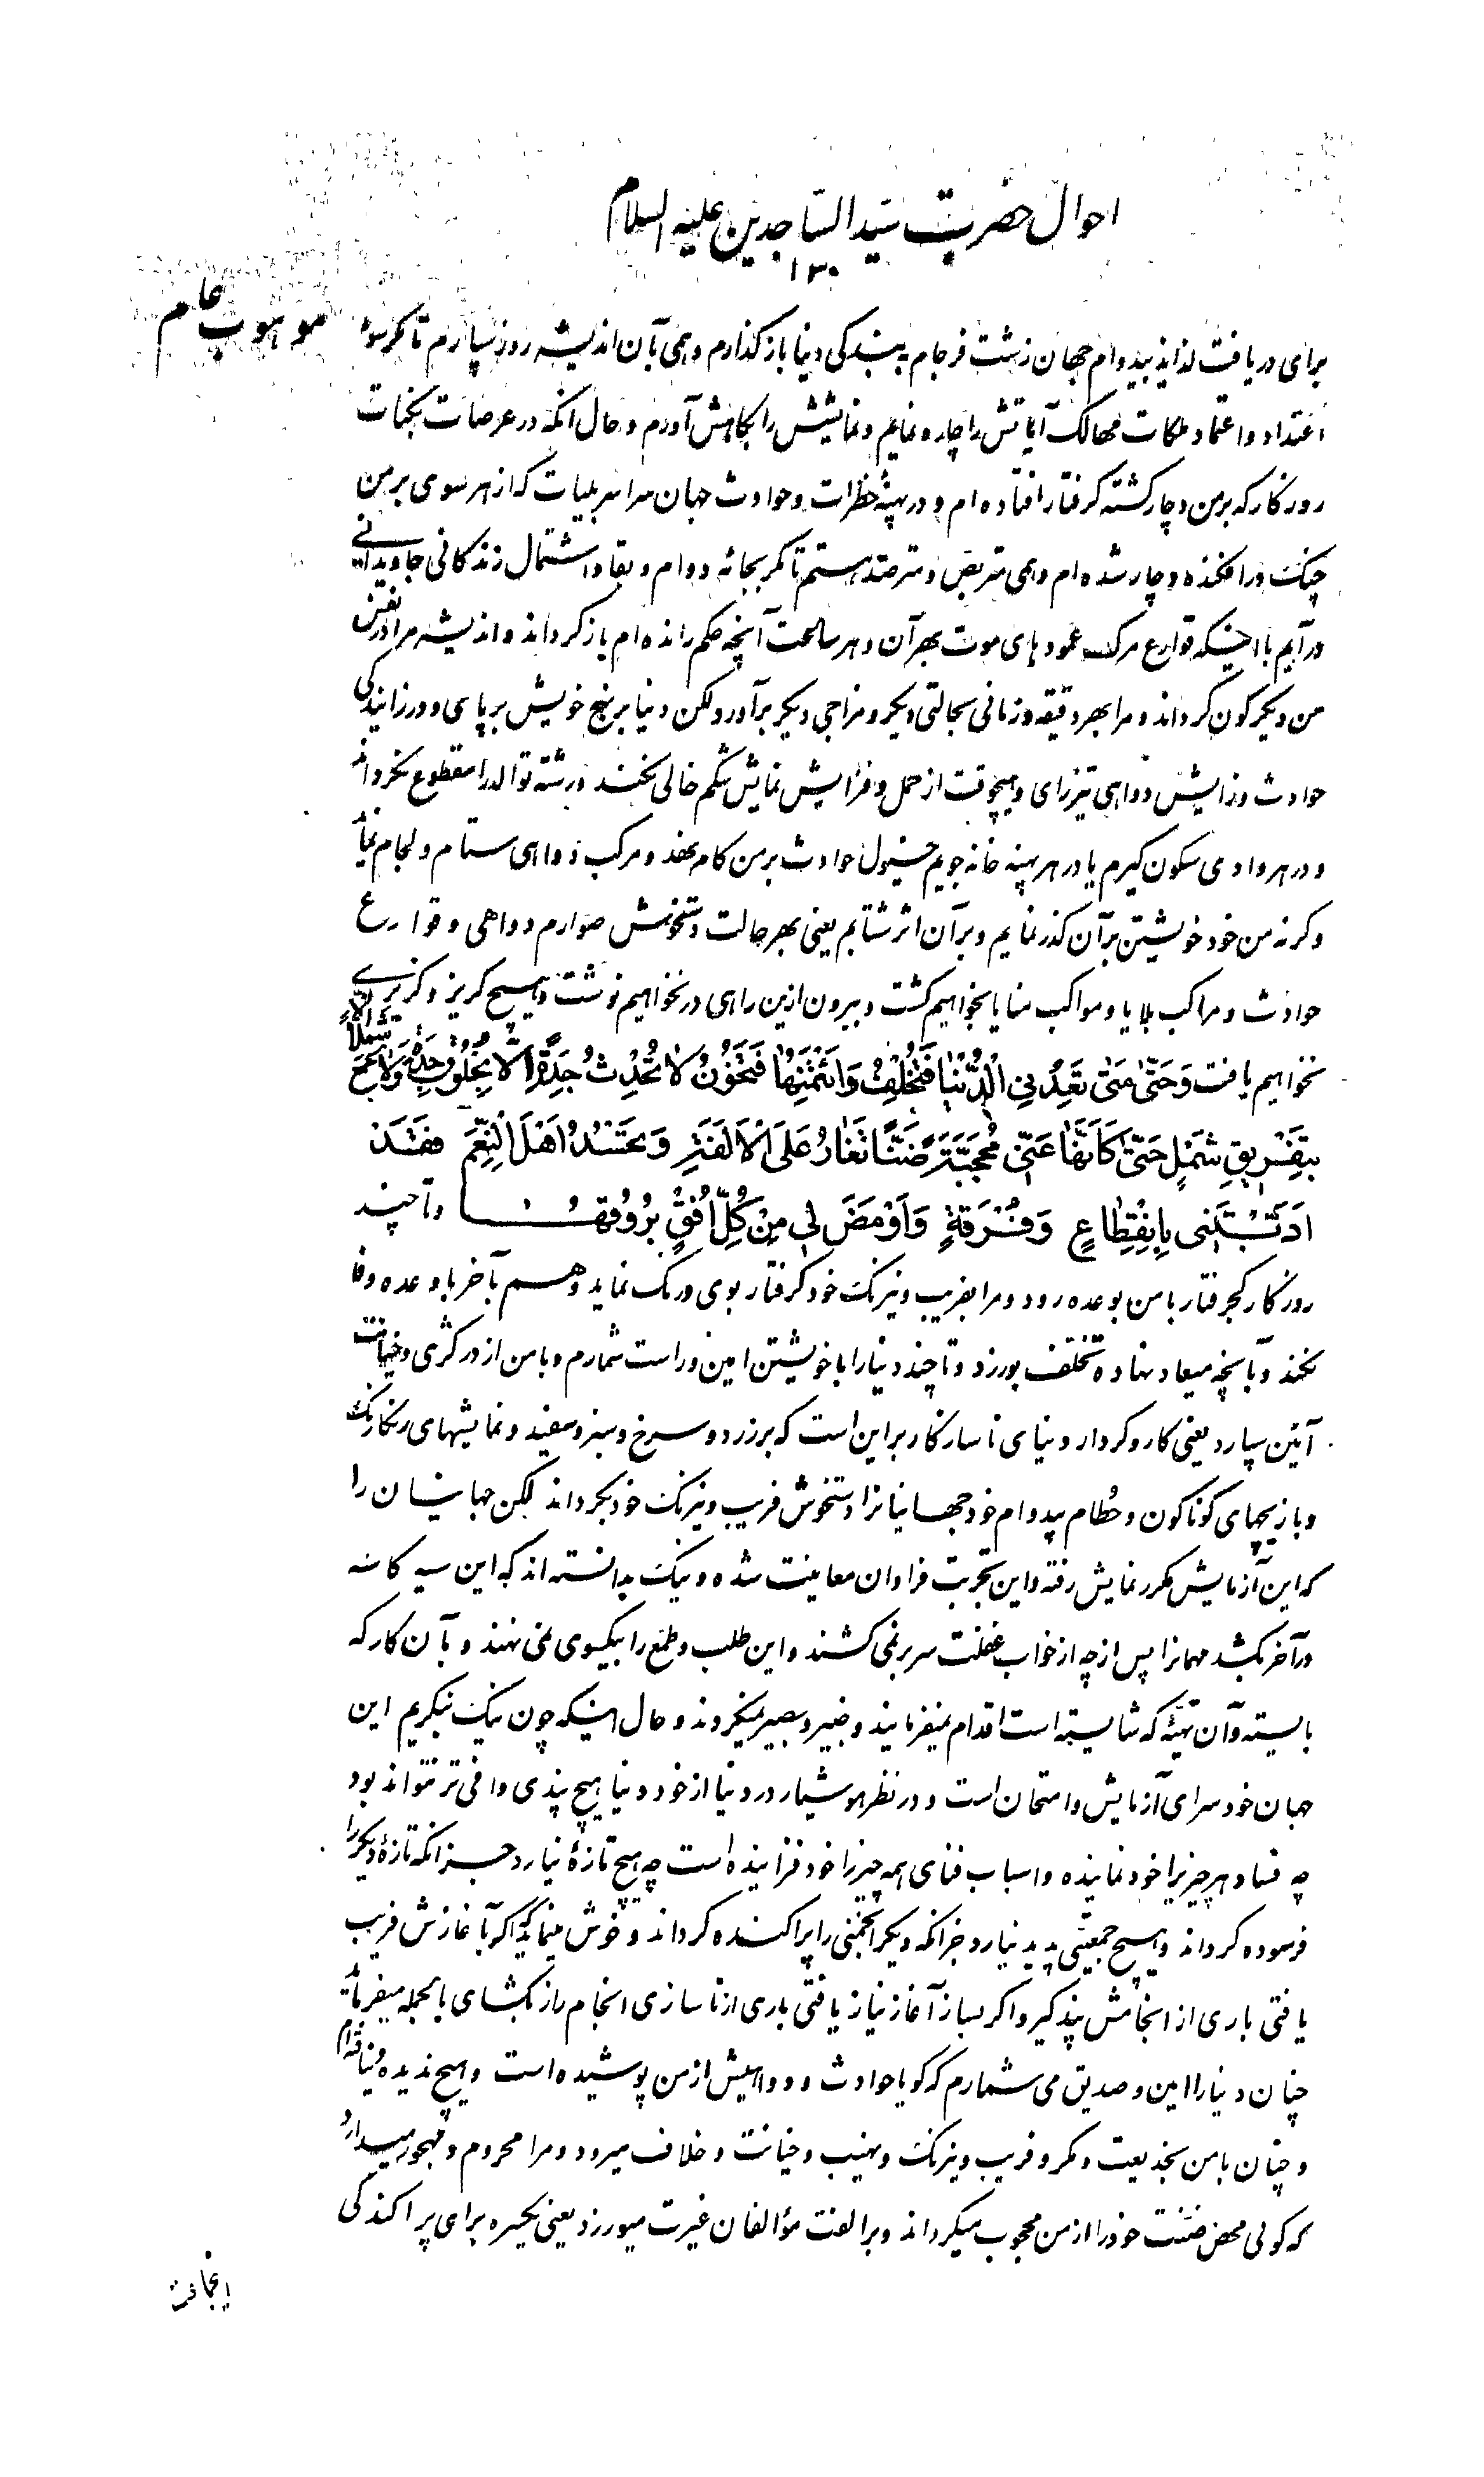 احوال حضرت سیّد السّاجدین علیه السلام
۱۳۰
موهوب عام
برای دریافت لذایذ بیدوام جهان زشت فرجام ببندکی دنیا باز کذارم و همی بآن اندیشه روز سپارم تا مکر
اعتداد و اعتماد ملکات مهالک آیاتش را چاره نمایم و نمایشش را بکاهش آورم و حال آنکه در عرضات نکبات
روزکار که بر من دچار کشته کرفتار افتاده ام و در پهنهٔ خطرات و حوادث جهان سراسر بلیات که از هر سوی بر من
چنک در افکنده دچار شده ام و همی متربص و مترصد هستم تا مکر بجائه دوام و بقا و اشتمال زندکانی جاویدانی
در آیم با اینکه قوارع مرک و عمودهای موت بهر آن و هر ساعت آنچه حکم رانده ام باز کرداند و اندیشه مرا در نفس
من دیکرکون کرداند و مرا بهر دقیقه و زمانی بحالتی دیکر و مزاجی دیکر برآورد و لکن دنیا بر نهج خویش بر پای و در زایندکی
حوادث و زایش دواهی تیز رای و هیچوقت از حمل و فزایش نمایش شکم خالی نکند و رشته توالد را مقطوع نکرداند
و در هر وادی سکون کیرم یا در هر پهنه خانه جویم خیول حوادث بر من کام نهد و مرکب دواهی ستام و لجام نماید
و کرنه من خود خویشتن بر آن کذر نمایم و بر آن اثر شتابم یعنی بهر حالت دستخوش صوارم دواهی و قوارع
حوادث و مراکب بلایا و مواکب منایا بخواهیم کشت و بیرون ازین راهی در نخواهیم نوشت و هیچ کریز و کزیری
نخواهیم یافت وَحَتّیٰ مَتیٰ تَعِدُنِی الدُّنْیٰا فَتُخْلِفُ وَائْتَمِنُهٰا فَتَخُونُ لاٰ تُحْدِثُ جَدِیدَةً اِلّاٰ بِخُلُوقِ جِدَّةٍ وَلاٰ تَجْمَعُ شَمْلاً اِلّاٰ
بِتَفْرِیقِ شَمْلٍ حَتّیٰ کَاَنَّهٰا عَنّی مُحَجَّبَةٌ ضَنّاً تَغٰارُ عَلَی الْاُلْفَةِ وَتَحْسُدُ اَهْلَ النِّعَمِ فَقَدْ
اٰذَنَتْنی بِانْقِطٰاعٍ وَفُرْقَةٍ وَاَوْمَضَ لی مِنْ کُلِّ اُفُقٍ بُرُوقُهٰا و تا چند
روزکار کجرفتار با من بوعده رود و مرا بفریب و نیرنک خود کرفتار بوی و رنک نماید و هم بآخر با وعده وفا
نکند و بآنچه میعاد نهاده تخلف بورزد و تا چند دنیا را با خویشتن امین و راست شمارم و با من از در کژی و خیانت
آئین سپارد یعنی کار و کردار دنیای ناسازکار بر این است که بر زرد و سرخ و سبز و سفید و نمایشهای رنکارنک
و بازیچهای کوناکون و حُطام بیدوام خود جهانیانرا دستخوش فریب و نیرنک خود بکرداند لکن جهانیان را
که این آزمایش مکرر نمایش رفته و این تجربت فراوان معاینت شده و نیک بدانسته اند که این سیه کاسه
در آخر بکشد مهمانرا پس از چه از خواب غفلت سر بر نمی کشند و این طلب و طمع را بیکسوی نمی نهند و بآن کار که
بایسته و آن تهیّه که شایسته است اقدام نمیفرمایند و خبیر و بصیر نمیکردند و حال اینکه چون نیک بنکریم این
جهان خود سرای آزمایش و امتحان است و در نظر هوشیار در دنیا از خود دنیا هیچ پندی وافی تر نتواند بود
چه فساد هر چیزیرا خود نماینده و اسباب فنای همه چیز را خود فزاینده است چه هیچ تازهٔ نیارد جز آنکه تازهٔ دیکر را
فرسوده کرداند و هیچ جمعیّتی پدید نیارد جز آنکه دیکر انجمنی را پراکنده کرداند و خوش مینماید که اکر بآغازش فریب
یافتی باری از انجامش پند کیر و اکر بساز آغاز نیاز یافتی باری از ناسازی انجام راز بکشای بالجمله میفرماید
چنان دنیا را امین و صدیق می شمارم که کویا حوادث و دواهیش از من پوشیده است و هیچ ندیده و نیافته ام
و چنان با من بخدیعت و مکر و فریب و نیرنک و نهیب و خیانت و خلاف میرود و مرا محروم و مهجور میدارد
که کوئی محض ضنّت خود را از من محجوب میکرداند و بر الفت مؤالفان غیرت میورزد یعنی یکسره برای پراکندکی